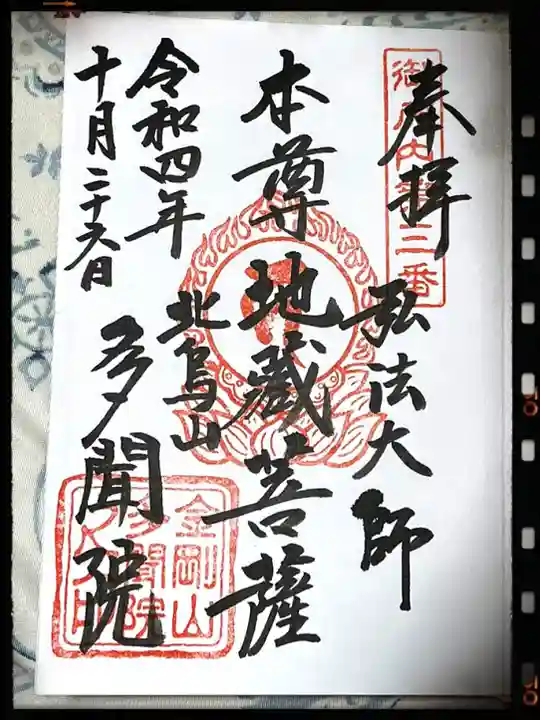 御府内第三番
奉拝
弘法大師
本尊
地蔵菩薩
北烏山
多聞院
令和四年
十月二十日
金剛山
多聞院